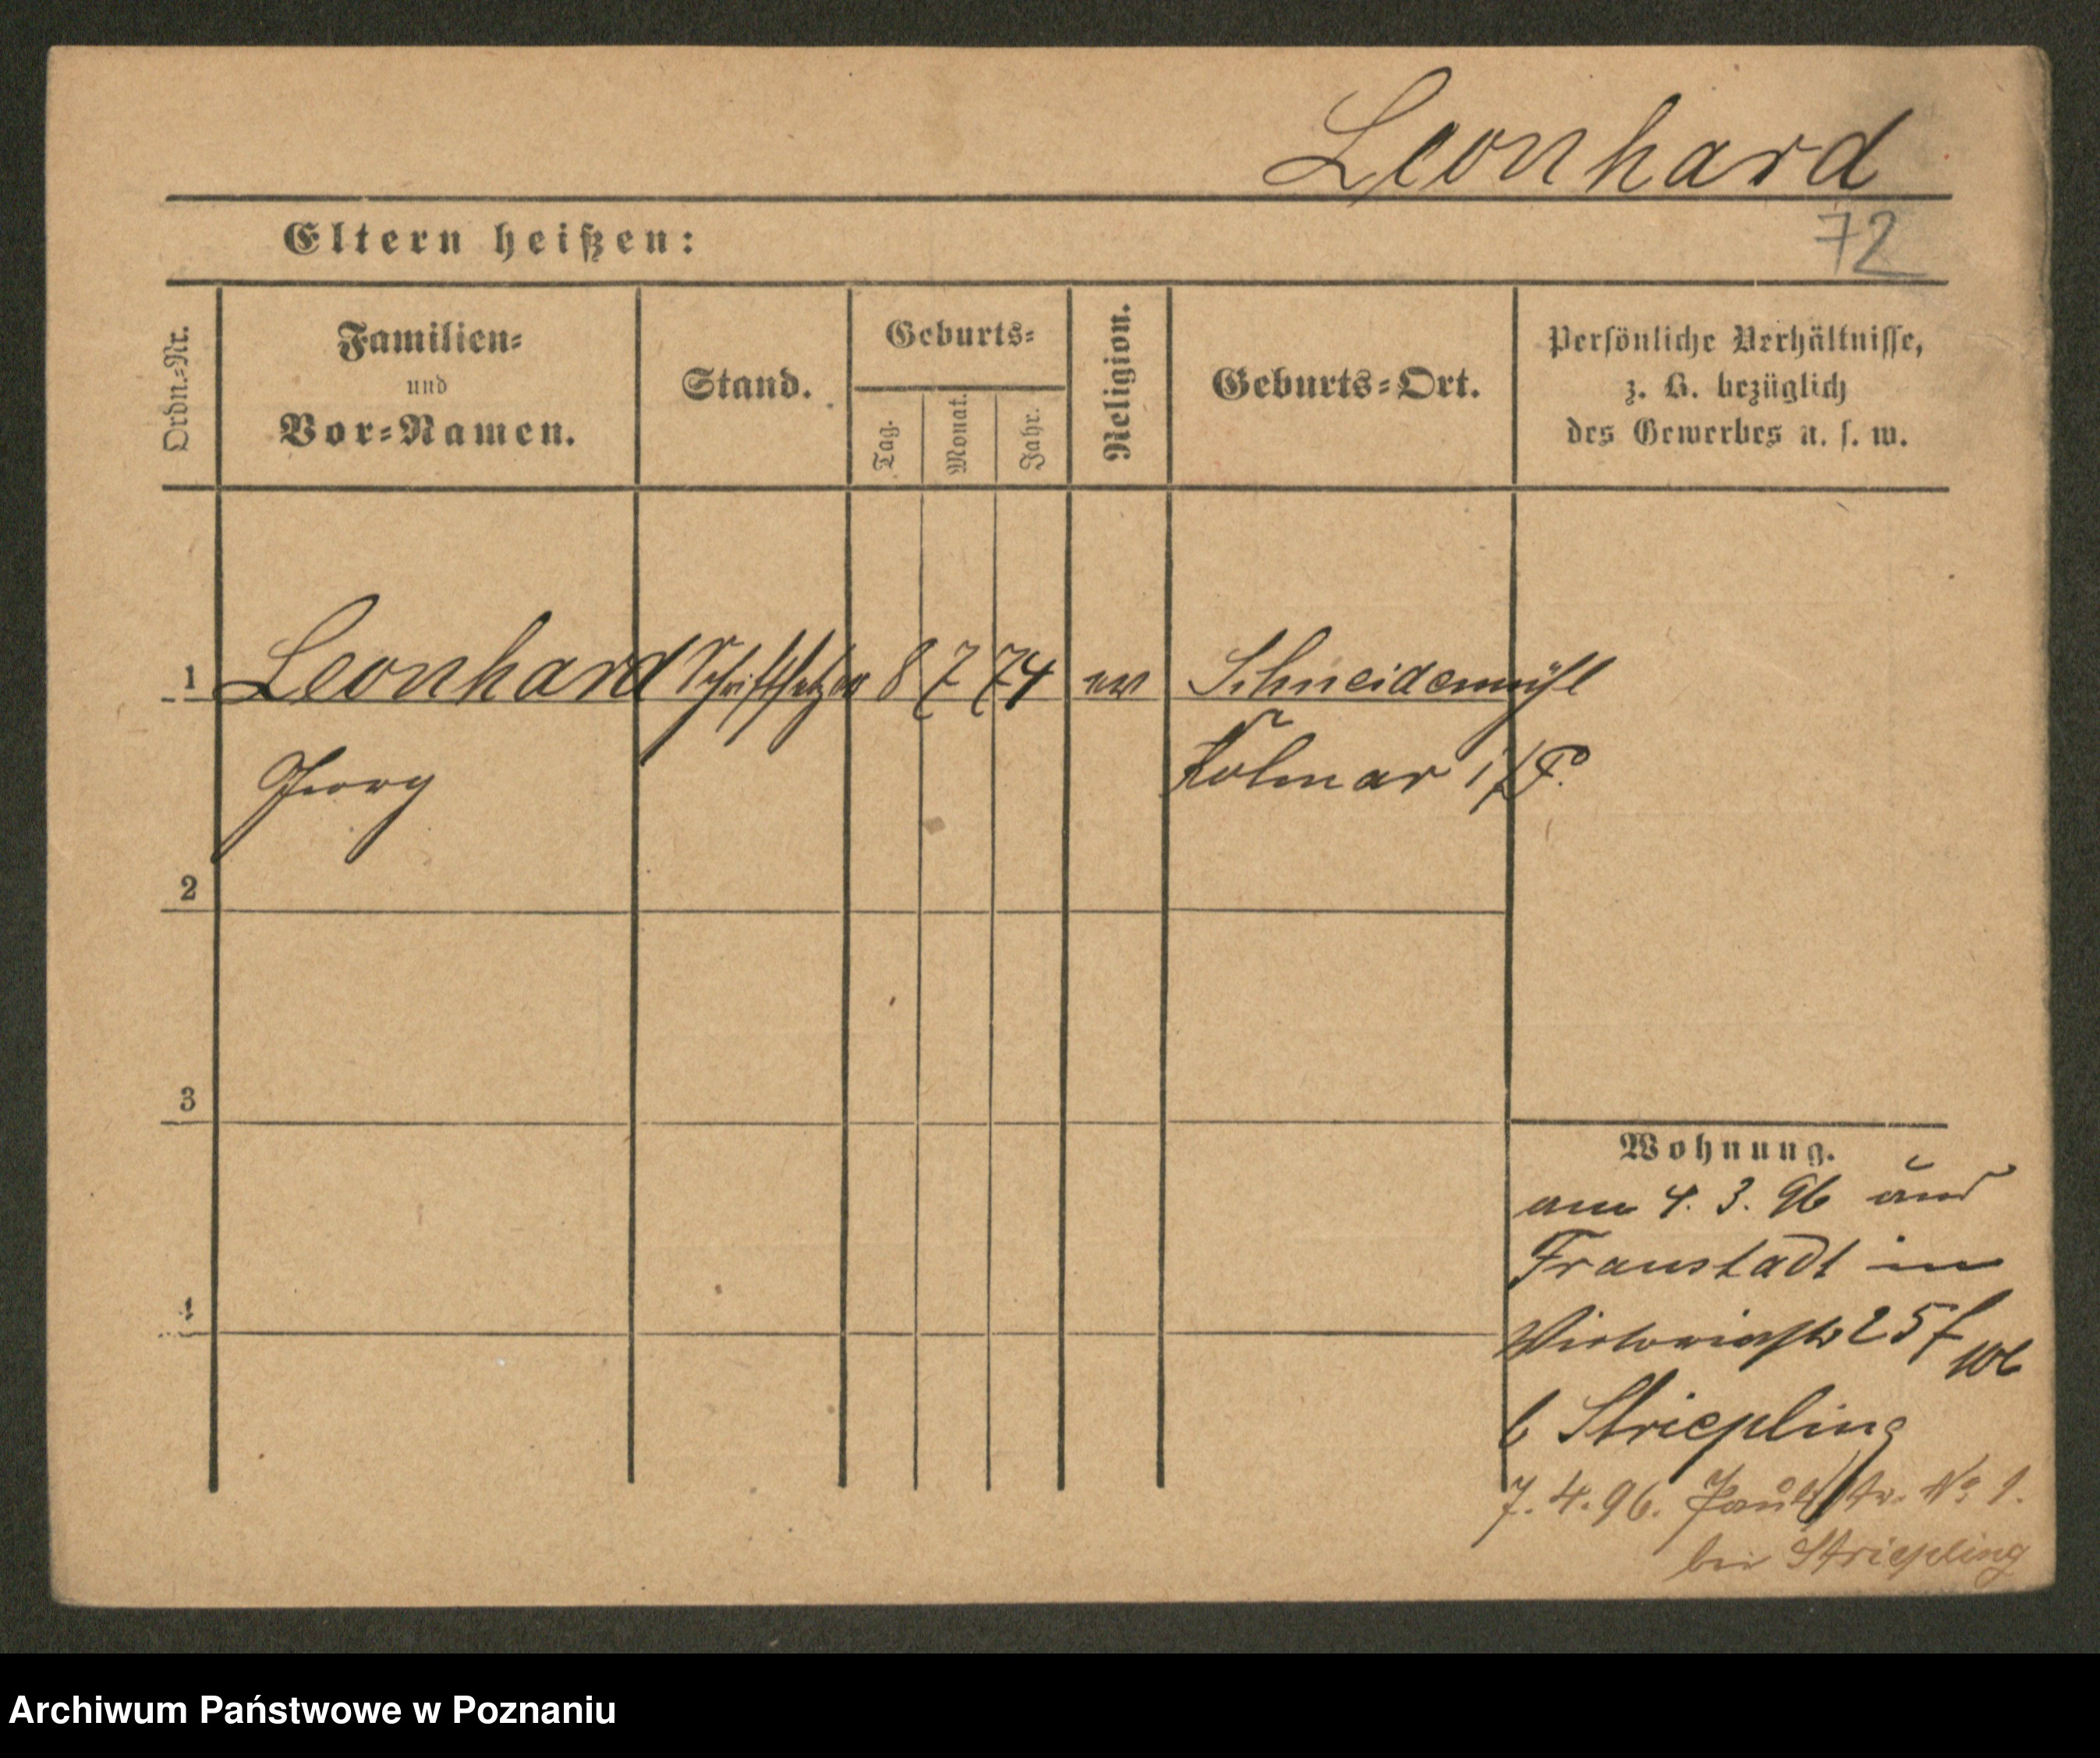 Leonhard
72
Eltern heißen:
Ordn.-Nr.
Familien-
und
Vor-Namen.
Stand.
Geburts-
Tag.
Monat.
Jahr.
Religion.
Geburts-Ort.
Persönliche Verhältnisse,
z. B. bezüglich
des Gewerbes u. s. w.
1 Leonhard Schriftsetzer 8 7 74 ev Schneidemühl
Georg Kolmar i/P.
2
3
4
Wohnung.
am 4. 3. 96 aus
Fraustadt in
Victoriastr 25
b Striepling
7. 4. 96. Paulistr. No 1.
bei Striepling
Archiwum Państwowe w Poznaniu